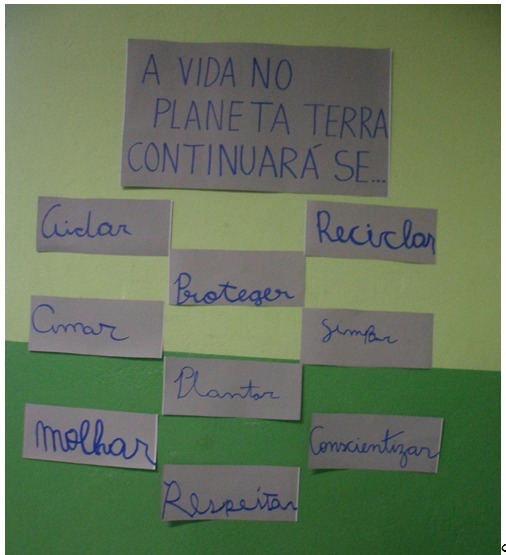 A VIDA NO
PLANETA TERRA
CONTINUARÁ SE...
Cuidar
Reciclar
Proteger
Amar
Limpar
Plantar
Molhar
Conscientizar
Respeitar